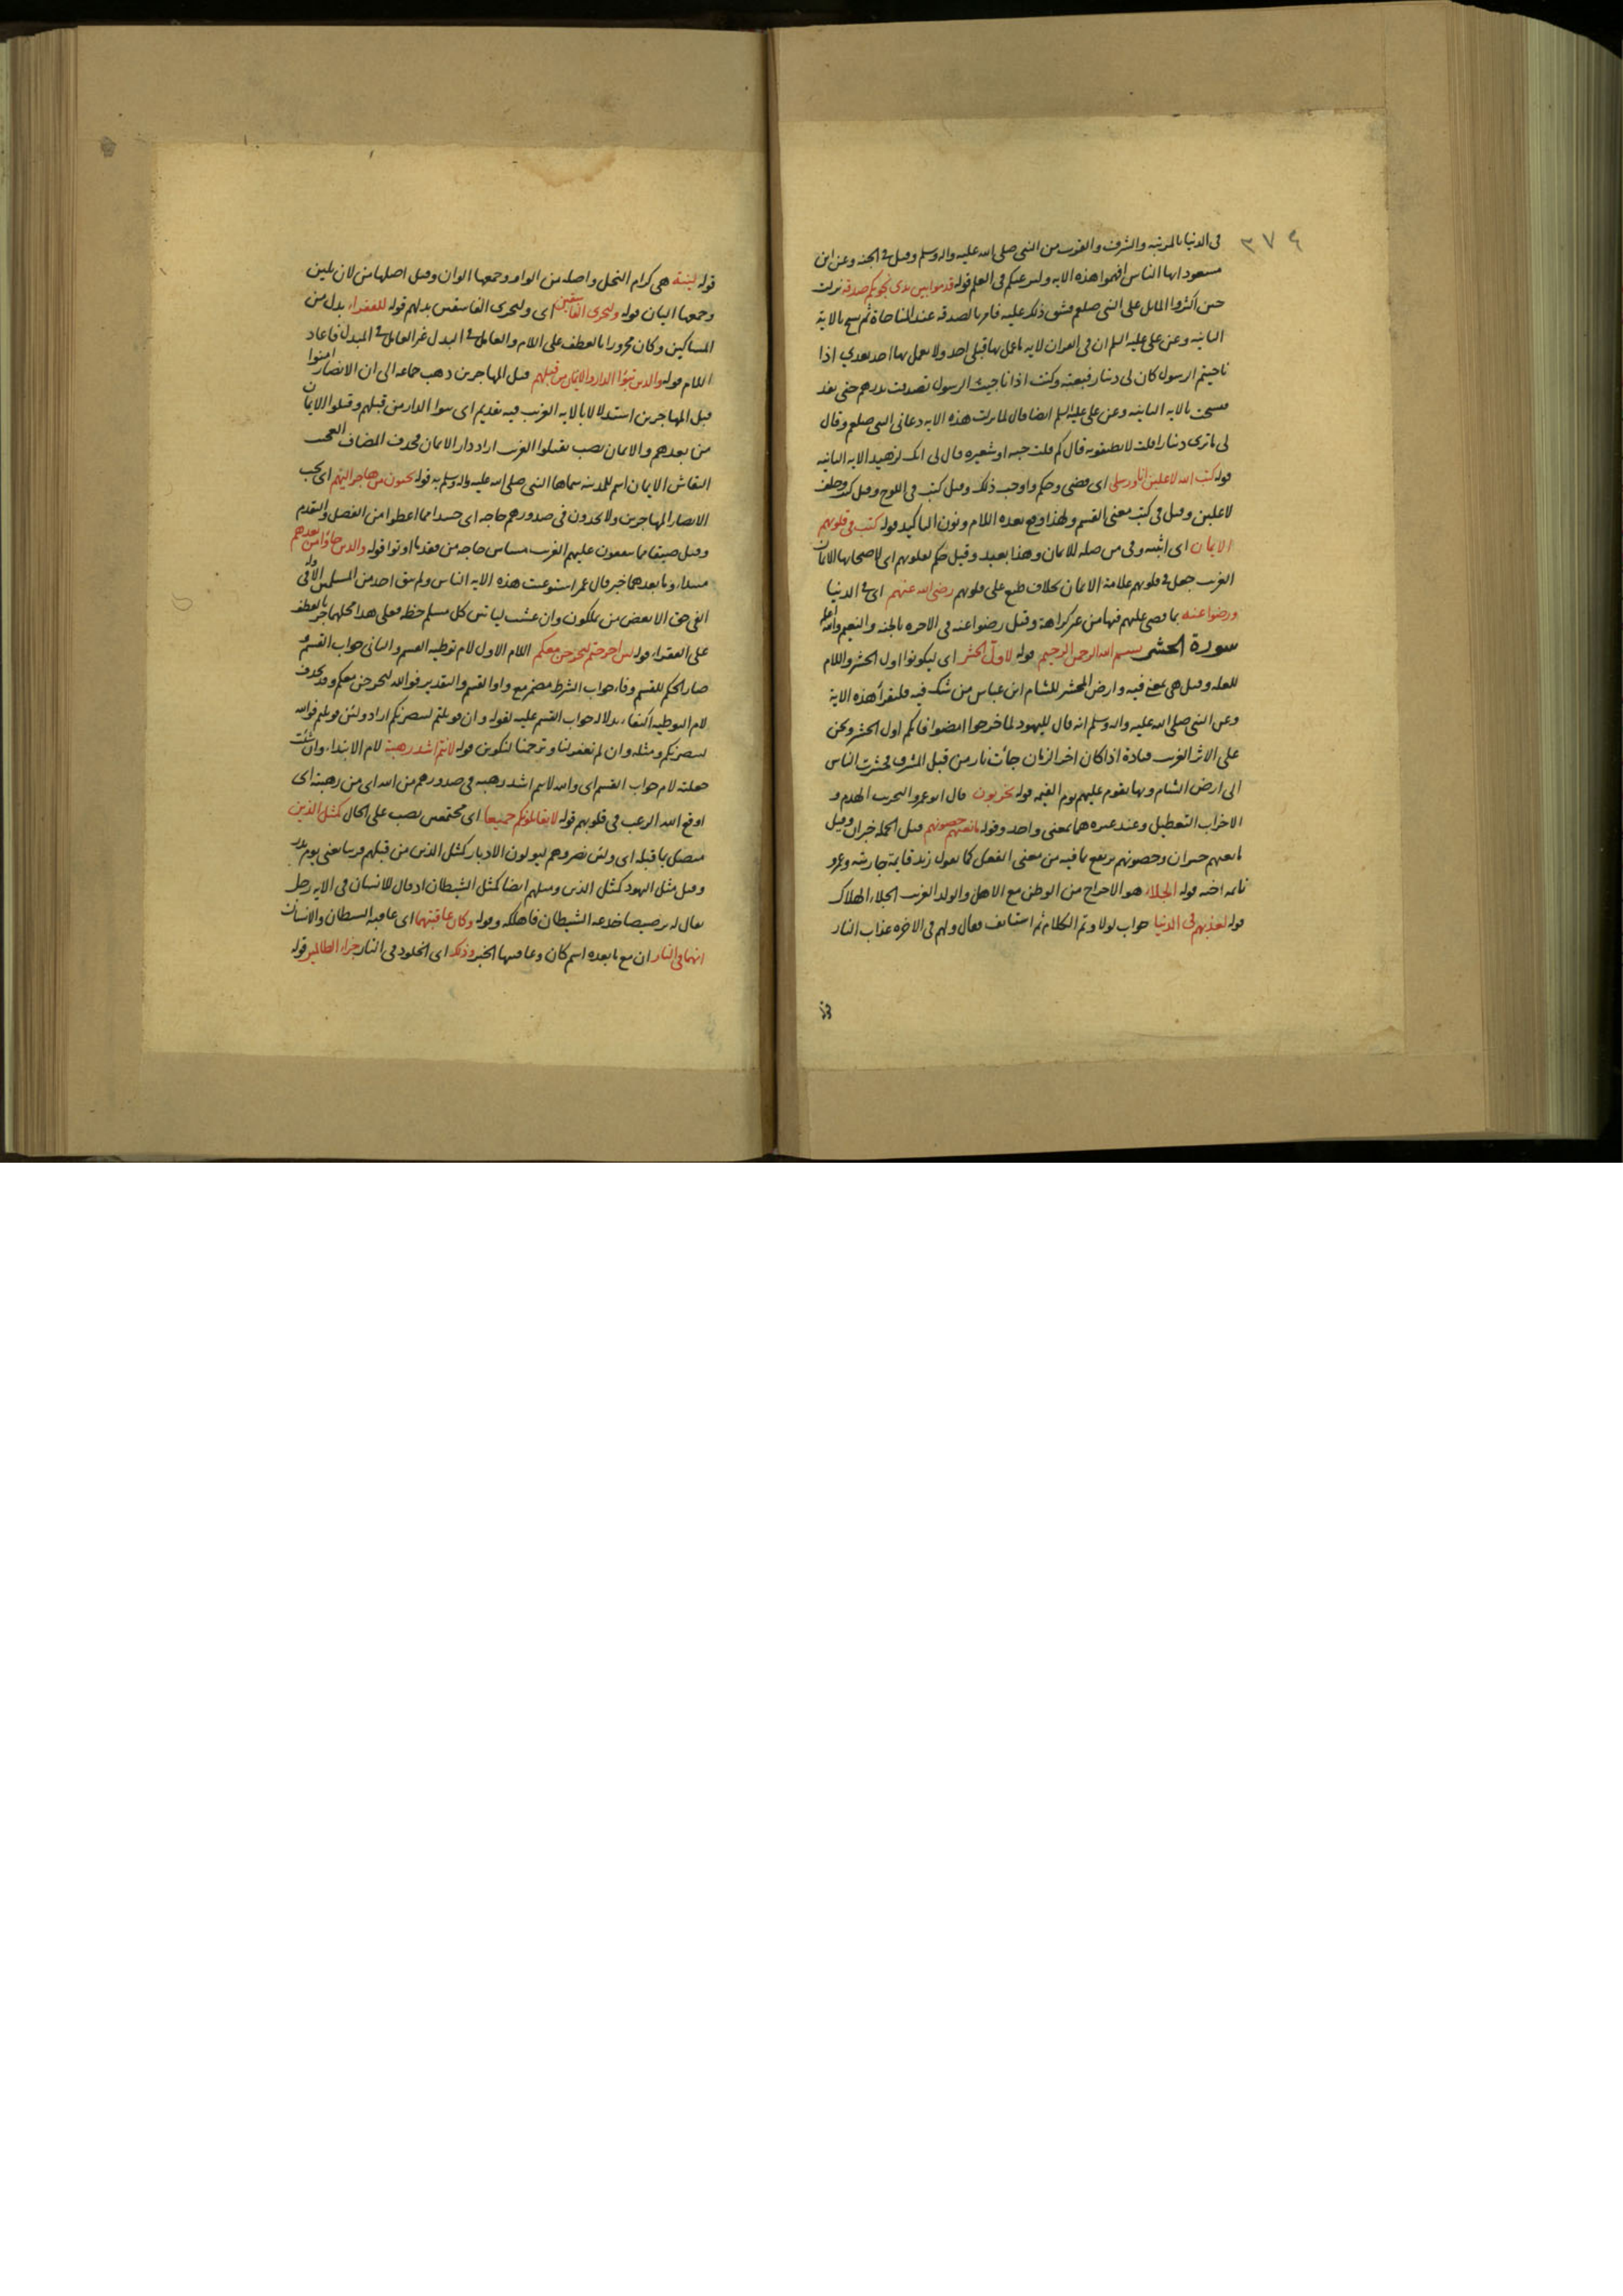 ٣٧٤
فى الدنيا بالمرتبه والشرف والقرب من النبى صلى الله عليه واله وسلم وقيل فى الجنه وعن ابن
مسعود ايها الناس افهموا هذه الايه ولترغبكم فى العلم قوله قدموا بين يدى نجويكم صدقه نزلت
حين اكثروا المسايل على النبى صلعم فشق ذلك عليه فامر بالصدقه عند المناجاة ثم نسخ بالاية
الثانيه وعن على عليه السلم ان فى القران لايه ما عمل بها قبلى احد ولا يعمل بها احد بعدي اذا
ناجيتم الرسول كان لى دينار فبعته وكنت اذا ناجيت الرسول تصدقت بدرهم حتى نفد
فنسخت بالايه الثانيه وعن على عليه السلم ايضا قال لما نزلت هذه الايه دعانى النبى صلعم وقال
لى ما ترى دينارا قلت لا يطيقونه قال كم قلت حبه او شعيره قال لى انك لزهيد الايه الثانيه
قوله كتب الله لاغلبن انا ورسلى اى قضى وحكم واوجب ذلك وقيل كتب فى اللوح وقيل كتب وحلف
لاغلبن وقيل فى كتب معنى القسم ولهذا وقع بعده اللام ونون التاكيد قوله كتب فى قلوبهم
الايمان اى اثبته وفى من صله للايمان وهذا بعيد وقيل حكم لقلوبهم اى لاصحابها الايمان
الغريب جعل فى قلوبهم علامة الايمان بخلاف طبع على قلوبهم رضى الله عنهم اى فى الدنيا
ورضوا عنه بما قضى عليهم فيها من غير كراهة وقيل رضوا عنه فى الاخره بالجنه والنعيم والله اعلم
سورة الحشر بسم الله الرحمن الرحيم قوله لاول الحشر اى ليكونوا اول الحشر واللام
للعله وقيل هى بمعنى فيه وارض المحشر للشام ابن عباس من شك فيه فليقرأ هذه الاية
وعن النبى صلى الله عليه واله وسلم انه قال لليهود لما خرجوا امضوا فانكم اول الحشر ونحن
على الاثر الغريب قتادة اذا كان اخر الزمان جائت نار من قبل المشرق فحشرت الناس
الى ارض الشام وبها يقوم عليهم يوم القيمه قوله يخربون قال ابو عمرو التخريب الهدم و
الاخراب التعطيل وعند غيره هما بمعنى واحد وقوله مانعتهم حصونهم قيل الجمله خبر ان وقيل
مانعتهم خبر ان وحصونهم يرتفع بما فيه من معنى الفعل كما تقول زيد قايمة جاريته وعمرو
نائمه اخته قوله الجلاء هو الاخراج من الوطن مع الاهل والولد الغريب الجلاء الهلاك
قوله لعذبهم فى الدنيا جواب لولا وتم الكلام ثم استانف فقال ولهم فى الاخره عذاب النار
قوله لينة هى كرام النخل واصله من الواو وجمعها الوان وقيل اصلها من لان يلين
وجمعها اليان قوله وليخزى الفاسقين اى وليخزى الفاسقين يذلهم قوله للفقراء بدل من
المساكين وكان مجرورا بالعطف على اللام والعامل فى البدل غير العامل فى المبدل فاعاد
اللام قوله والذين تبوؤا الدار والايمان من قبلهم قيل المهاجرين ذهب جماعه الى ان الانصار امنوا
قبل المهاجرين استدلالا بالايه الغريب فيه تقديم اى تبوا الدار من قبلهم وقبلوا الايمان
من بعدهم والايمان نصب بقبلوا الغريب اراد دار الايمان فحذف المضاف العجب
النقاش الايمان اسم للمدينه سماها النبى صلى الله عليه واله وسلم به قوله يحبون من هاجر اليهم اى يحب
الانصار المهاجرين ولا يجدون فى صدورهم حاجه اى حسدا مما اعطوا من الفضل والتقدم
وقيل ضيقا مما ينفقون عليهم الغريب مساس حاجه من فقد ما اوتوا قوله والذين جاؤا من بعدهم
مبتداء وما بعدهما خبر قال عمر استوعبت هذه الايه الناس ولم يبق احد من المسلمين الا وله فى
الفى حق الا بعض من يملكون وان عشت لياتين كل مسلم حظه فعلى هذا محلهما جر بالعطف
على الفقراء قوله لئن اخرجتم لنخرجن معكم اللام الاول لام توطيه القسم والثانى جواب القسم و
صار الحكم للقسم وفاء جواب الشرط مضمر مع واو القسم والتقدير فوالله لنخرجن معكم وقد يحذف
لام التوطيه اكتفاء بدلاله جواب القسم عليه لقوله وان قوتلتم لننصرنكم اراد ولئن قوتلتم فوالله
لننصرنكم ومثله وان لم تغفر لنا وترحمنا لنكونن قوله لانتم اشد رهبة لام الابتداء وان شئت
جعلته لام جواب القسم اى والله لانتم اشد رهبه فى صدورهم من الله اى من رهبته اى
اوقع الله الرعب فى قلوبهم قوله لا يقاتلونكم جميعا اى مجتمعين نصب على الحال كمثل الذين
متصل بما قبله اى ولئن نصروهم ليولون الادبار كمثل الذين من قبلهم قريبا يعنى يوم بدر
وقيل مثل اليهود كمثل الذين وسبيلهم ايضا كمثل الشيطان اذ قال للانسان فى الايه رجل
يقال له برصيصا خدعه الشيطان فاهلكه وقوله وكان عاقبتهما اى عاقبة الشيطان والانسان
انهما فى النار ان مع ما بعده اسم كان وعاقبتهما الخبر وذلك اى الخلود فى النار جزاء الظالمين قوله